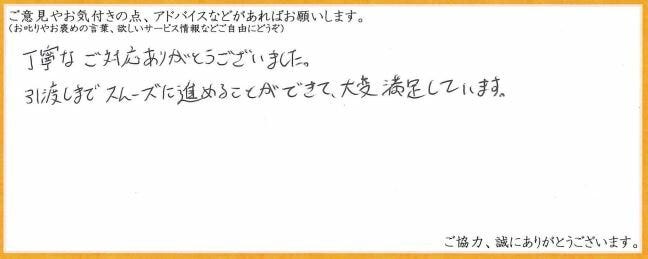 ご意見やお気付きの点、アドバイスなどがあればお願いします。
(お叱りやお褒めの言葉、欲しいサービス情報などご自由にどうぞ)
丁寧なご対応ありがとうございました。
引渡しまでスムーズに進めることができて、大変満足しています。
ご協力、誠にありがとうございます。